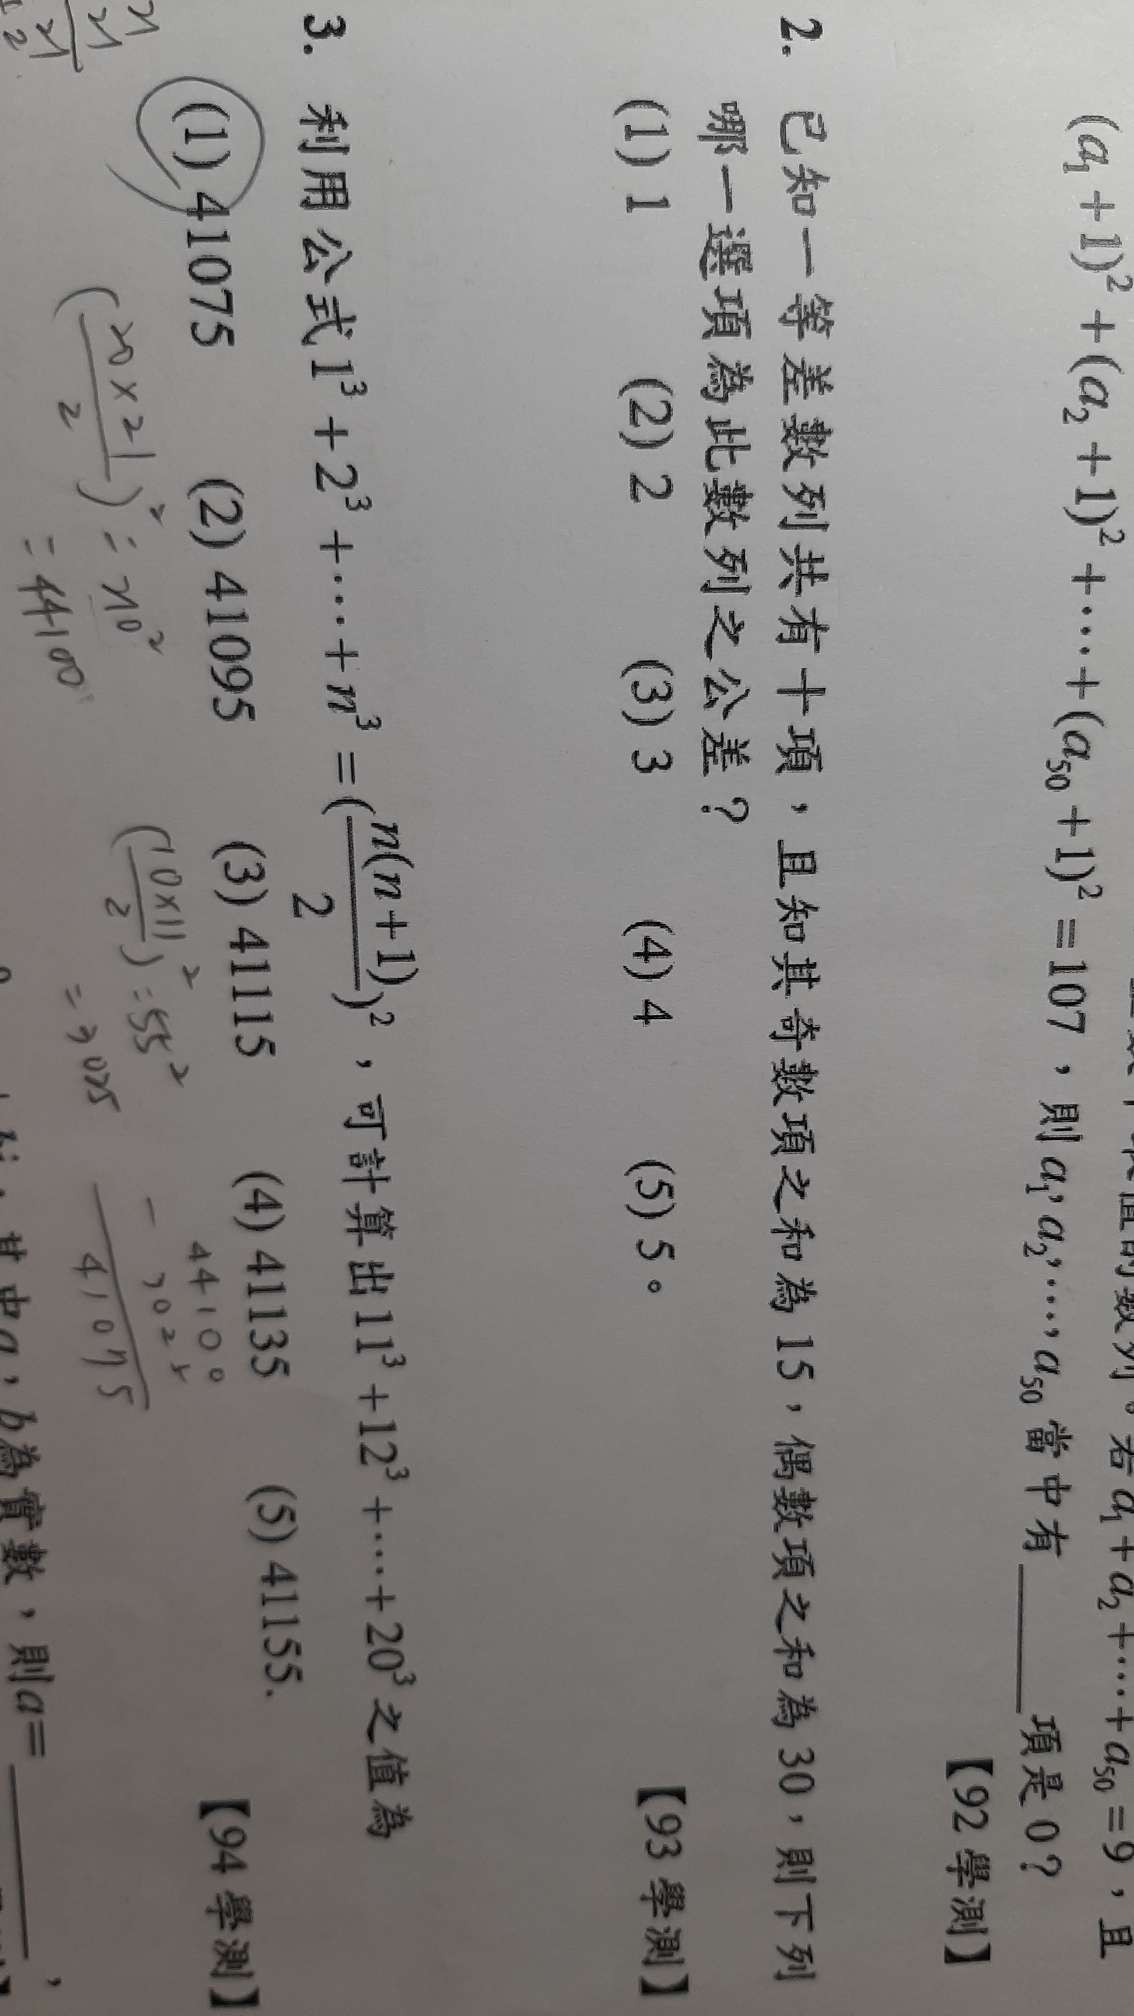 值的數列。若a₁+a₂+⋯+a₅₀=9,且
(a₁+1)²+(a₂+1)²+⋯+(a₅₀+1)²=107,則a₁,a₂,⋯,a₅₀當中有______項是0?
【92 學測】
2. 已知一等差數列共有十項,且知其奇數項之和為15,偶數項之和為30,則下列
哪一選項為此數列之公差?
(1) 1 (2) 2 (3) 3 (4) 4 (5) 5。
【93 學測】
3. 利用公式1³+2³+⋯+n³=(n(n+1)/2)²,可計算出11³+12³+⋯+20³之值為
(1) 41075 (2) 41095 (3) 41115 (4) 41135 (5) 41155.
【94 學測】
(20×21/2)²=210²
=44100
(10×11/2)²=55²
=3025
44100
-3025
41075
其中a,b為實數,則a=______,